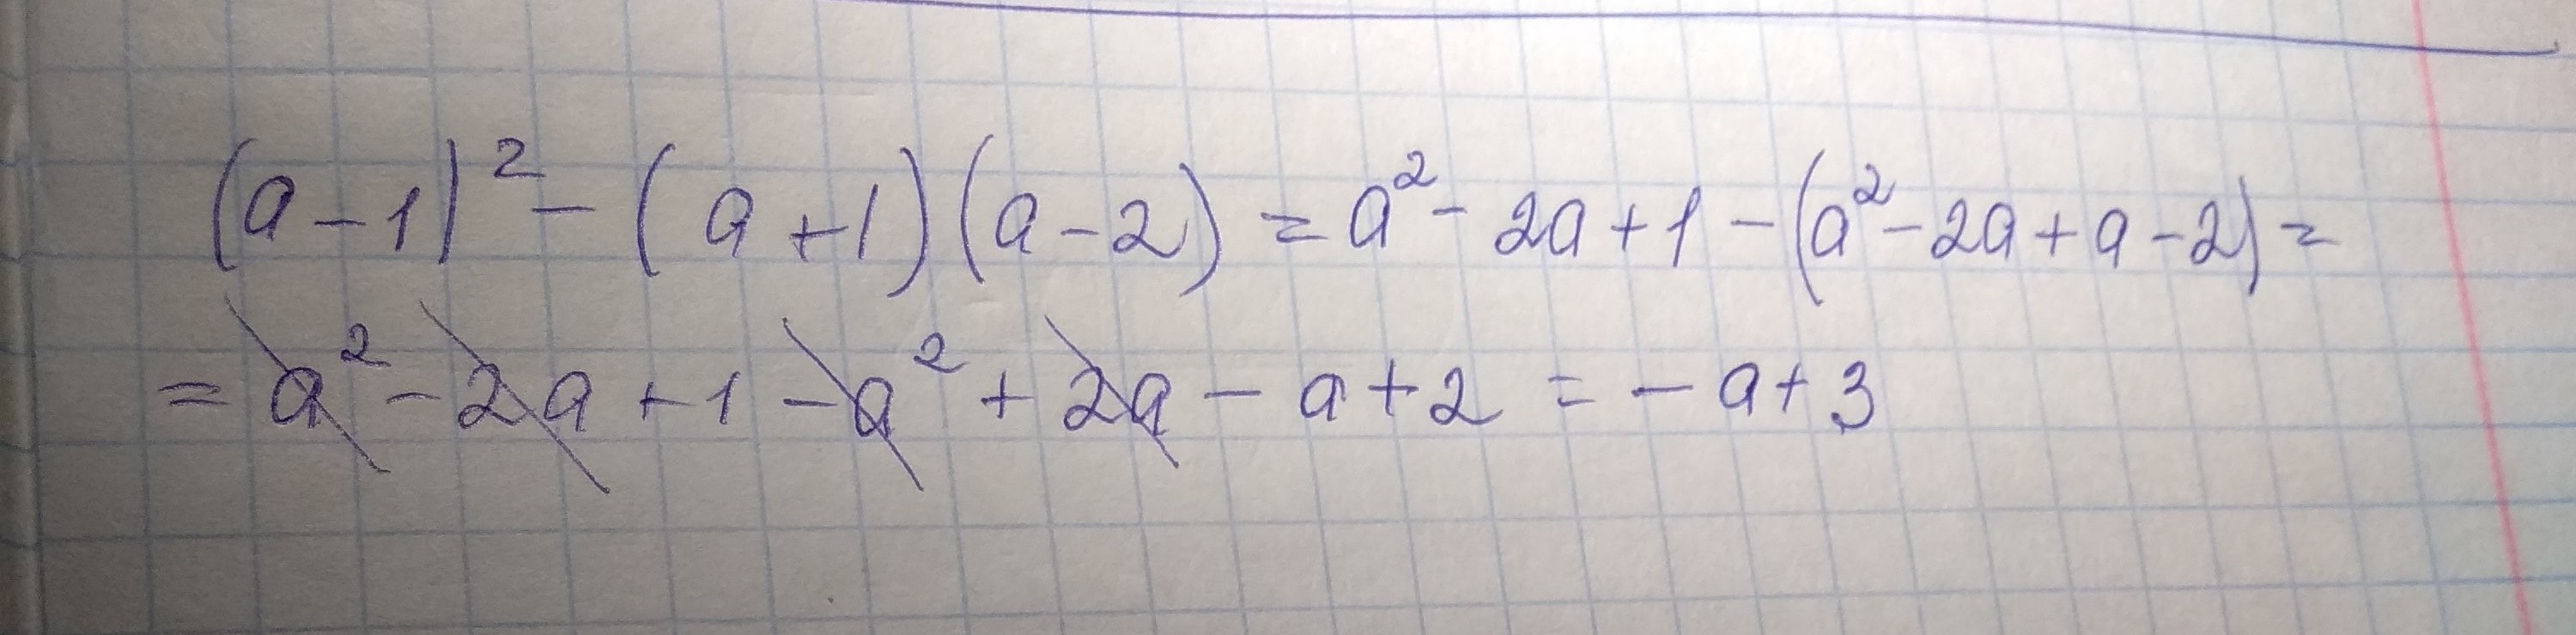 (a-1)² - (a+1)(a-2) = a² - 2a + 1 - (a² - 2a + a - 2) =
= a² - 2a + 1 - a² + 2a - a + 2 = - a + 3